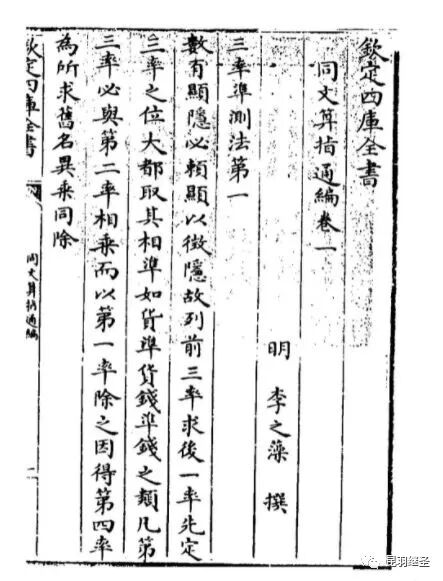 欽定四庫全書
同文算指通編卷一
明 李之藻 撰
三率準測法第一
數有顯隱必賴顯以徵隱故列前三率求後一率先定
三率之位大都取其相準如貨準貨錢準錢之類凡第
三率必與第二率相乘而以第一率除之因得第四率
為所求舊名異乘同除
欽定四庫全書
同文算指通編
昆羽继圣